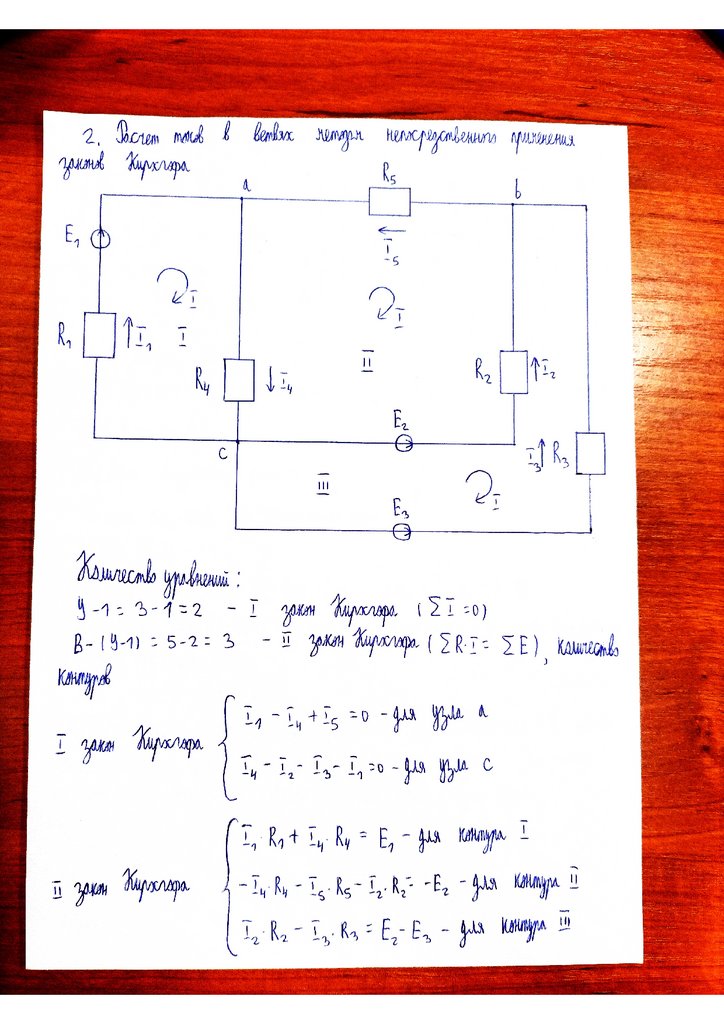 2. Расчет токов в ветвях методом непосредственного применения
законов Кирхгофа
a
R₅
b
E₁
I₅
I
I
R₁
I₁
I
II
R₄
I₄
R₂
I₂
E₂
c
I₃
R₃
III
I
E₃
Количество уравнений:
У-1 = 3-1 = 2 - I закон Кирхгофа (∑I=0)
В-(У-1) = 5-2 = 3 - II закон Кирхгофа (∑R·I = ∑E), количество
контуров
I закон Кирхгофа
I₁ - I₄ + I₅ = 0 - для узла a
I₄ - I₂ - I₃ - I₁ = 0 - для узла c
II закон Кирхгофа
I₁·R₁ + I₄·R₄ = E₁ - для контура I
-I₄·R₄ - I₅·R₅ - I₂·R₂ = -E₂ - для контура II
I₂·R₂ - I₃·R₃ = E₂ - E₃ - для контура III